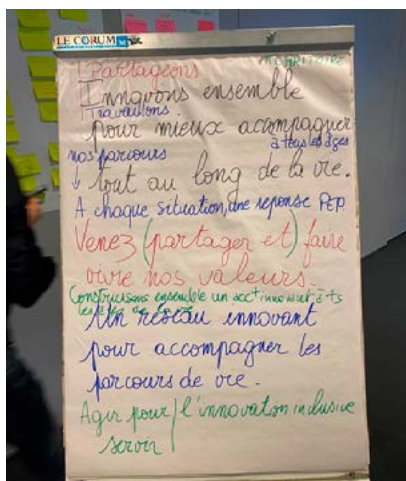 LE CORUM
Partageons
Innovons ensemble
Travaillons
pour mieux accompagner
à tous les âges
nos parcours
tout au long de la vie.
A chaque situation, une réponse PEP.
Venez (partager et) faire
vivre nos valeurs.
Construisons ensemble un acct innovant à ts
les
Un réseau innovant
pour accompagner les
parcours de vie.
Agir pour / l'innovation inclusive
servir